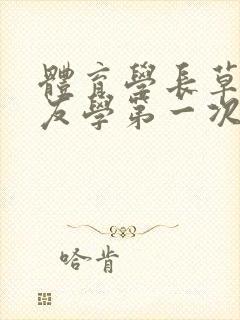 體育學長草
友學第一次
哈肯